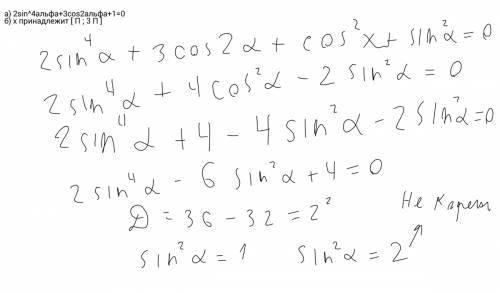 а) 2sin^4альфа+3cos2альфа+1=0
б) x принадлежит [ П ; 3 П ]
2sin⁴α + 3cos2α + cos²x + sin²α = 0
2sin⁴α + 4cos²α - 2sin²α = 0
2sin⁴α + 4 - 4sin²α - 2sin²α = 0
2sin⁴α - 6sin²α + 4 = 0
D = 36 - 32 = 2²
Не корень
sin²α = 1 sin²α = 2